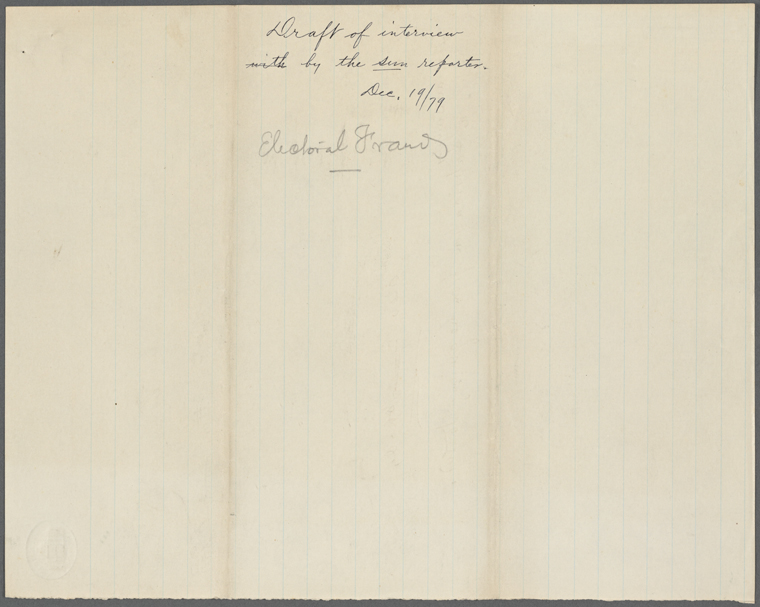 Draft of interview
with by the Sun reporter.
Dec. 19/79
Electoral Frauds